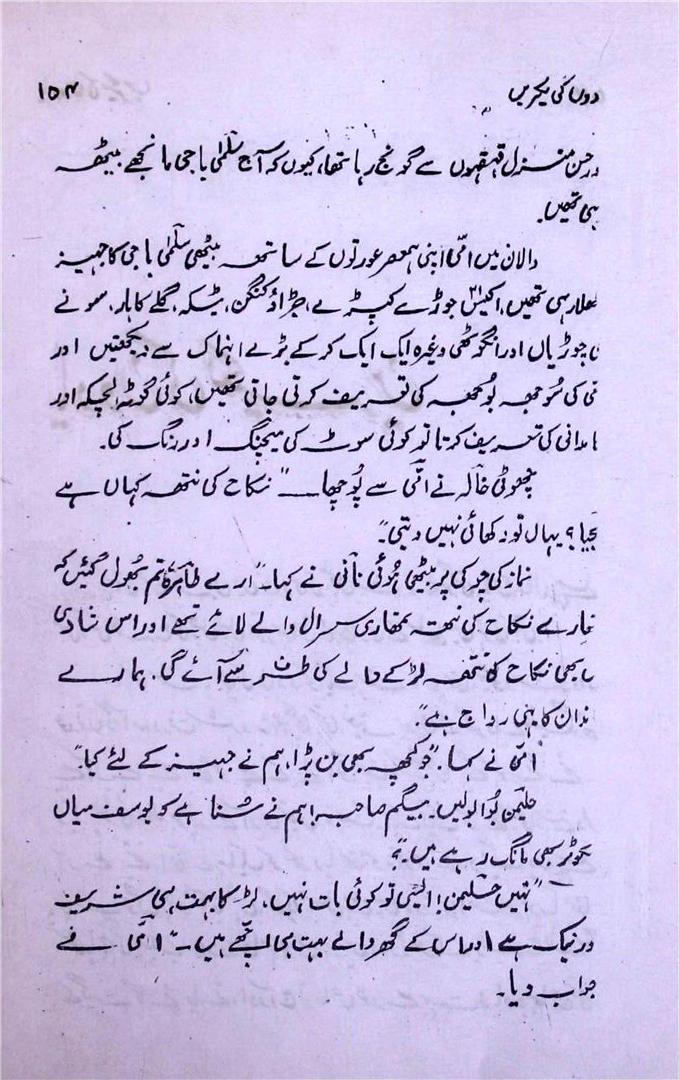 دوں کی لکیریں ۱۵۴
رحمن منزل قہقہوں سے گونج رہا تھا، کیوں کہ آج سلمٰی باجی مانجھے بیٹھ
ہی تھیں.
دالان میں امّی اپنی ہمعصر عورتوں کے ساتھ بیٹھی سلمٰی باجی کا جہیز
ھلا رہی تھیں، اکیس جوڑے کپڑے، جڑاؤ کنگن، ٹیکہ، گلے کا ہار، سونے
چوڑیاں اور انگوٹھی وغیرہ ایک ایک کر کے بڑے انہماک سے دیکھتیں اور
ّی کی سُوجھ بُوجھ کی تعریف کرتی جاتی تھیں، کوئی گوٹہ لچکہ اور
امدانی کی تعریف کرتا تو کوئی سوٹ کی میچنگ اور رنگ کی.
چھوٹی خالہ نے امّی سے پُوچھا ــــ "نکاح کی نتھ کہاں ہے
بجیا؟ یہاں تو دکھائی نہیں دیتی".
نماز کی چوکی پر بیٹھی ہُوئی نانی نے کہا۔ "ارے طاہرہ تم بھُول گئیں کہ
ہارے نکاح کی نتھ تمھاری سسرال والے لائے تھے اور اس شادی
بھی نکاح کا نتھ لڑکے والے کی طرف سے آئے گی. ہمارے
ندان کا یہی رواج ہے".
امّی نے کہا. "جو کچھ بھی بن پڑا، ہم نے جہیز کے لئے کیا."
حلیمن بُوا بولیں۔ بیگم صاحبہ! ہم نے سُنا ہے کہ یوسف میاں
بھی مانگ رہے ہیں۔"
"نہیں حلیمن! ایسی تو کوئی بات نہیں. لڑکا بہت ہی شریف
ور نیک ہے اور اس کے گھر والے بہت ہی اچھّے ہیں۔" امّی نے
جواب دیا.